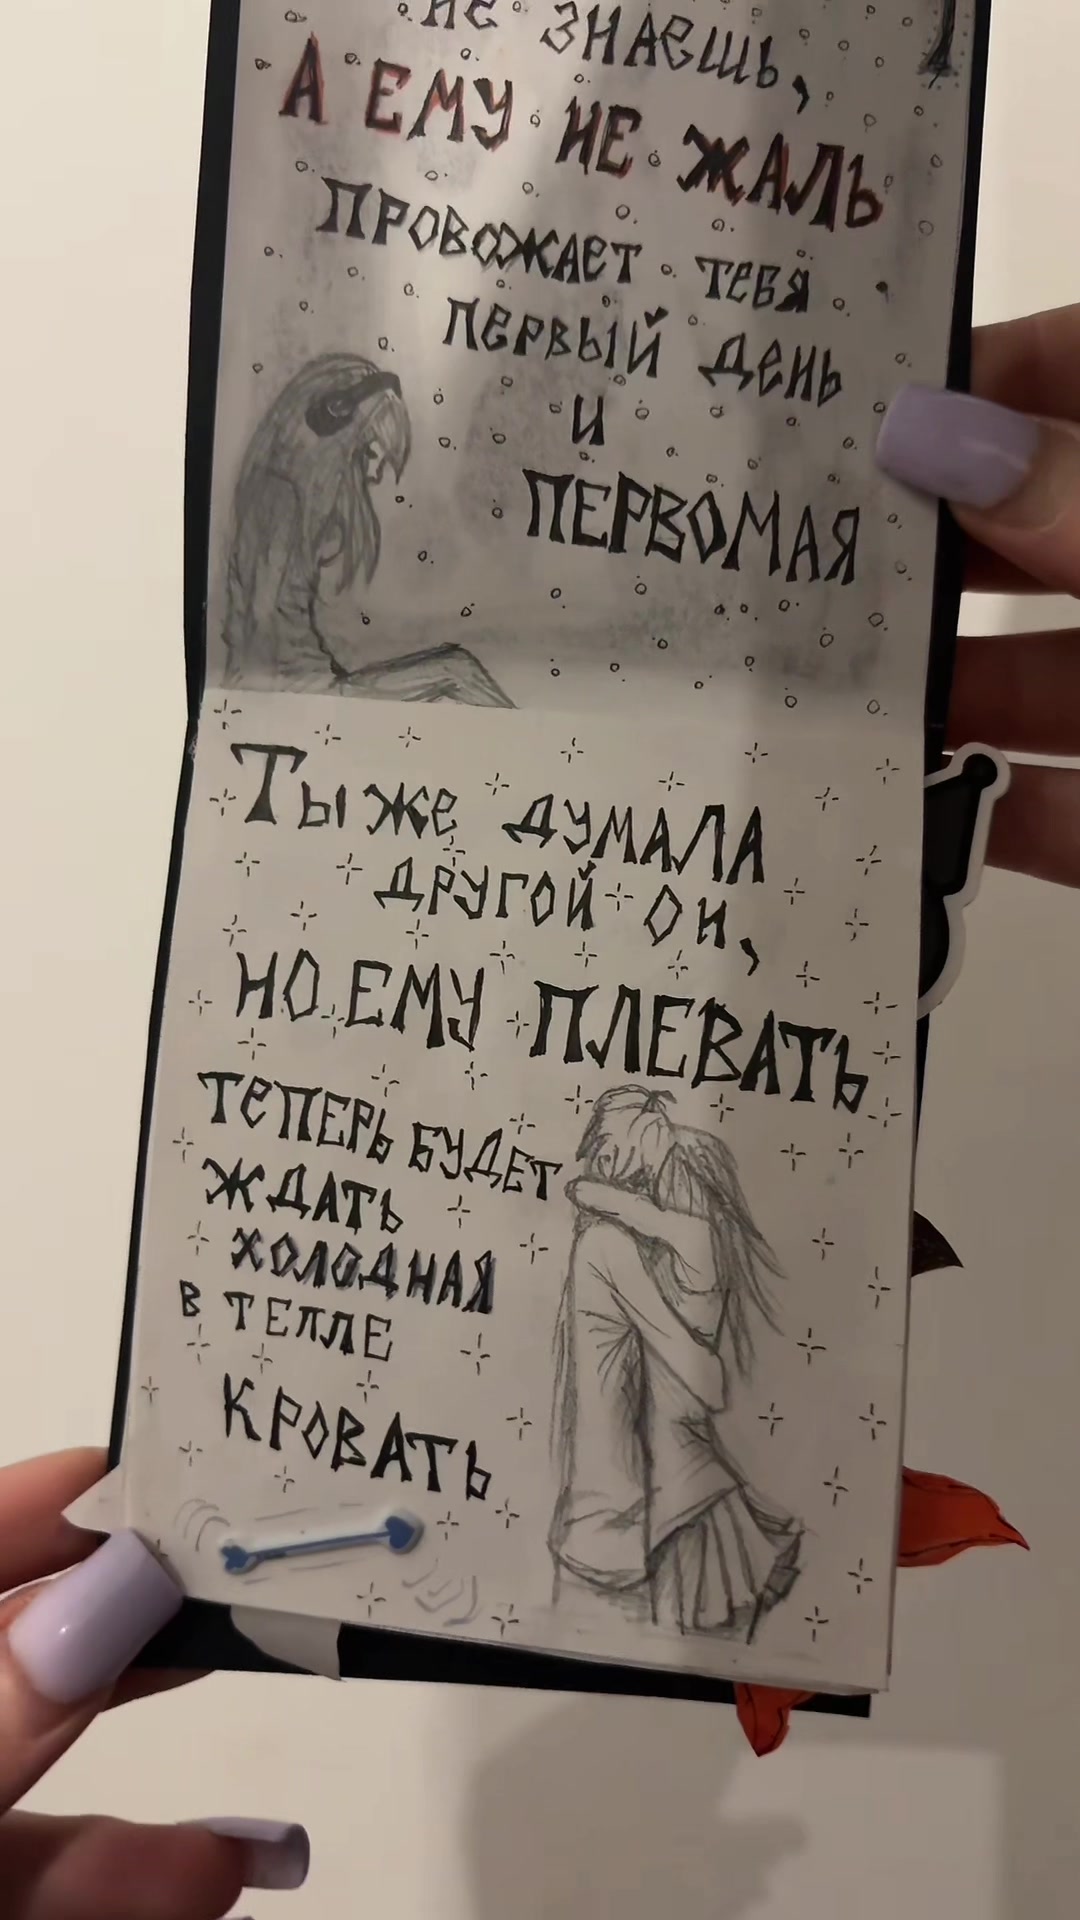 не знаешь,
А ЕМУ НЕ ЖАЛЬ
ПРОВОЖАЕТ ТЕБЯ
ПЕРВЫЙ ДЕНЬ
И
ПЕРВОМАЯ
Ты же ДУМАЛА
ДРУГОЙ ОН,
НО ЕМУ ПЛЕВАТЬ
ТЕПЕРЬ БУДЕТ
ЖДАТЬ
ХОЛОДНАЯ
В ТЕПЛЕ
КРОВАТЬ